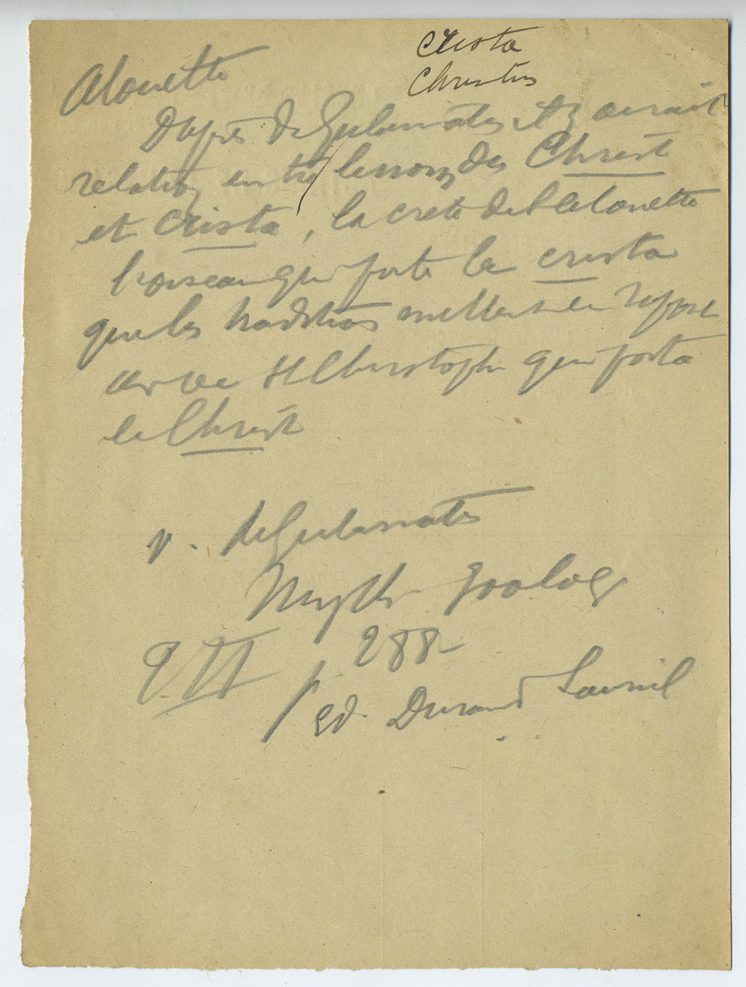 crista
Christus
Alouette
D'après de Gubernatis il y aurait
relation entre les noms des Christ
et crista, la crete de l'alouette
l'oiseau qui porte la crista
que les traditions mettent en
avec St Christophe qui porta
le Christ
v. de Gubernatis
Myth zoolog
T. II p 288
ed. Durand Lauriel